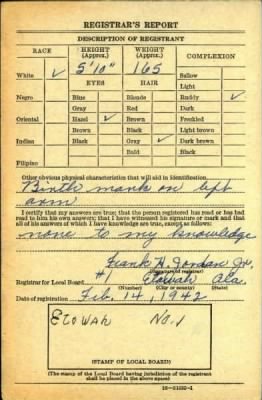 REGISTRAR'S REPORT
DESCRIPTION OF REGISTRANT
RACE HEIGHT (Approx.) WEIGHT (Approx.) COMPLEXION
White ✓ 5'10" 165 Sallow
EYES HAIR Light
Negro Blue Blonde Ruddy ✓
Gray Red Dark
Oriental Hazel ✓ Brown Freckled
Brown Black Light brown
Indian Black Gray ✓ Dark brown
Bald Black
Filipino
Other obvious physical characteristics that will aid in identification
Birth mark on left
arm
I certify that my answers are true; that the person registered has read or has had
read to him his own answers; that I have witnessed his signature or mark and that
all of his answers of which I have knowledge are true, except as follows:
none to my knowledge
Frank H. Jordan Jr.
(Signature of registrar)
Registrar for Local Board #1 Etowah Ala.
(Number) (City or county) (State)
Date of registration Feb. 14, 1942
Etowah No. 1
(STAMP OF LOCAL BOARD)
(The stamp of the Local Board having jurisdiction of the registrant
shall be placed in the above space)